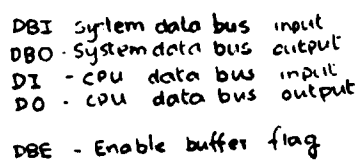 DBI System data bus input
DBO - System data bus output
DI - CPU data bus input
DO - CPU data bus output
DBE - Enable buffer flag